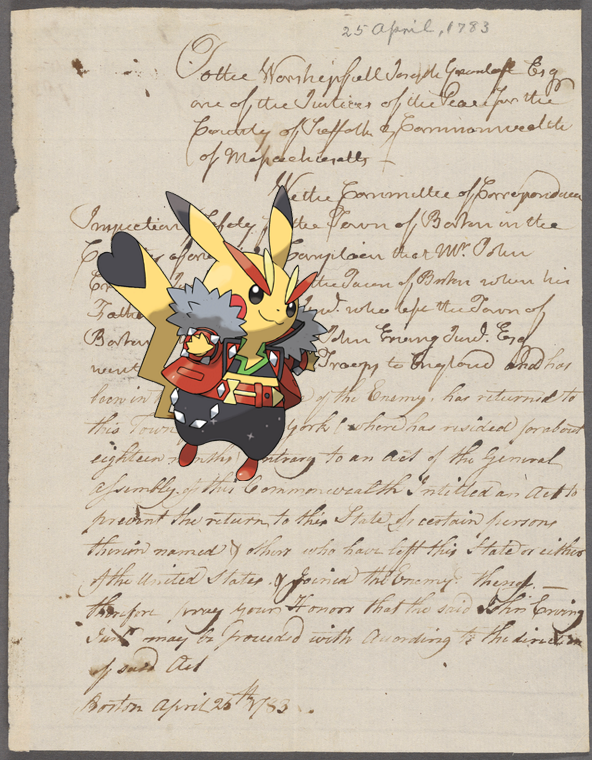 25 April, 1783
To the Worshipfull Joseph Greenleaf Esq
one of the Justices of the Peace for the
County of Suffolk & Commonwealth
of Massachusetts
We the Committee of Correspondence
Inspection Safety of the Town of Boston in the
Complain that Mr. John
the Town of Boston when his
Fathe who left the Town of
Boston John Erving Junr. Esq
went Troops to England and has
been in of the Enemy, has returned to
this Town York (where has resided for about
eighteen months) contrary to an Act of the General
Assembly of this Commonwealth Intitled an Act to
prevent the return to this State of certain persons
therein named & others who have left this State or either
of the United States & Joined the Enemy
therefore pray your Honor that the said John Erving
Junr. may be proceeded with according to the direction
of said Act
Boston April 25th 1783